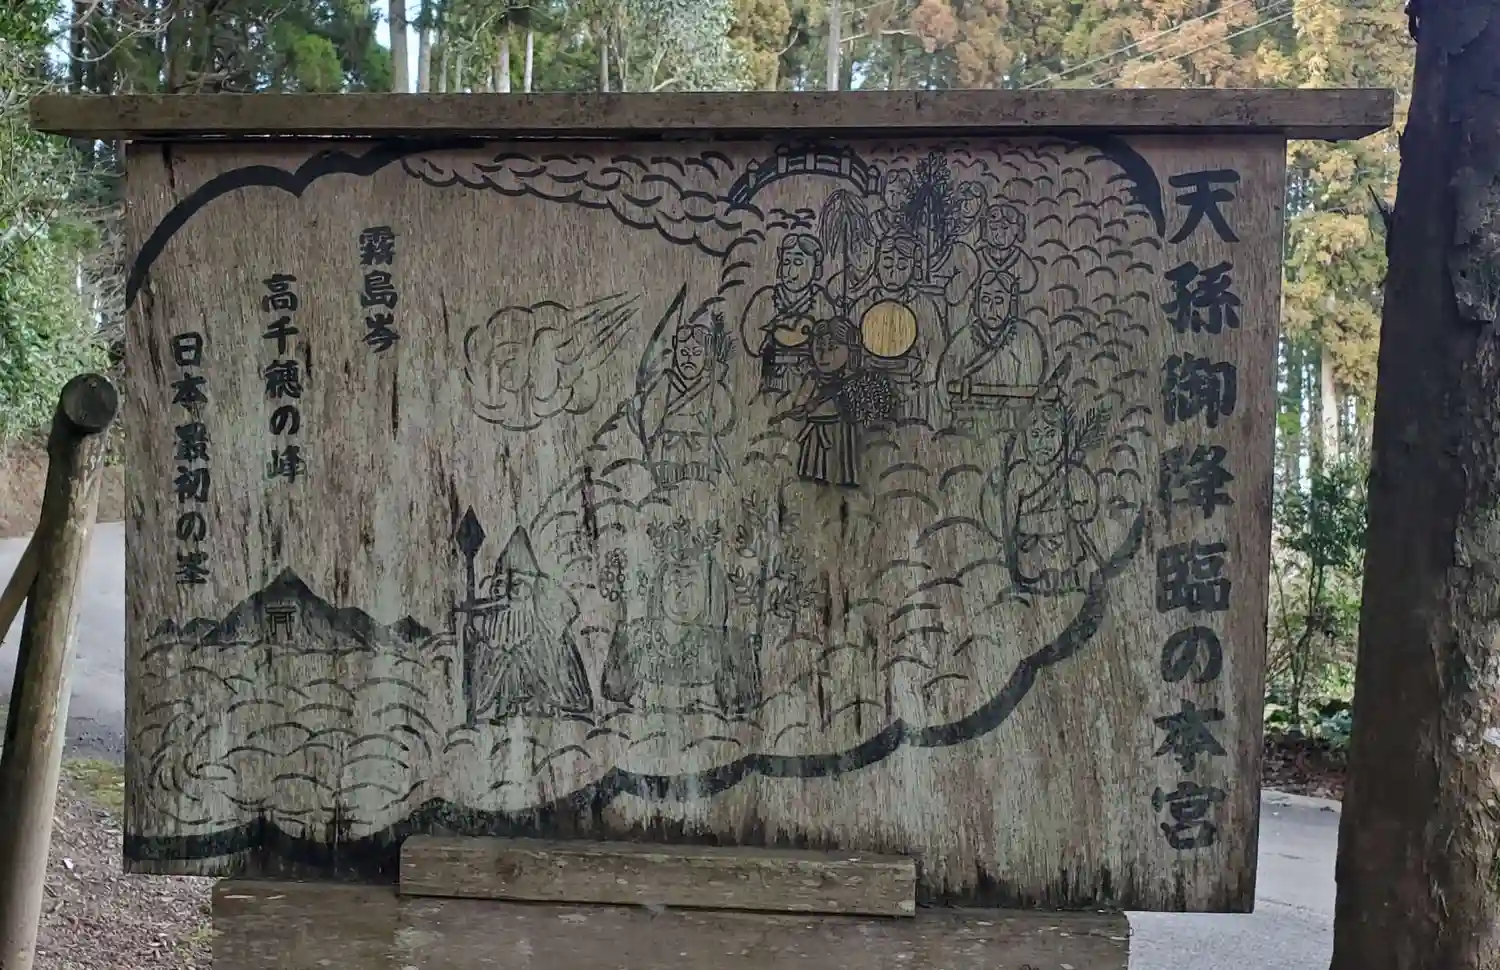 天孫御降臨の本宮
霧島岑
高千穂の峰
日本最初の峯